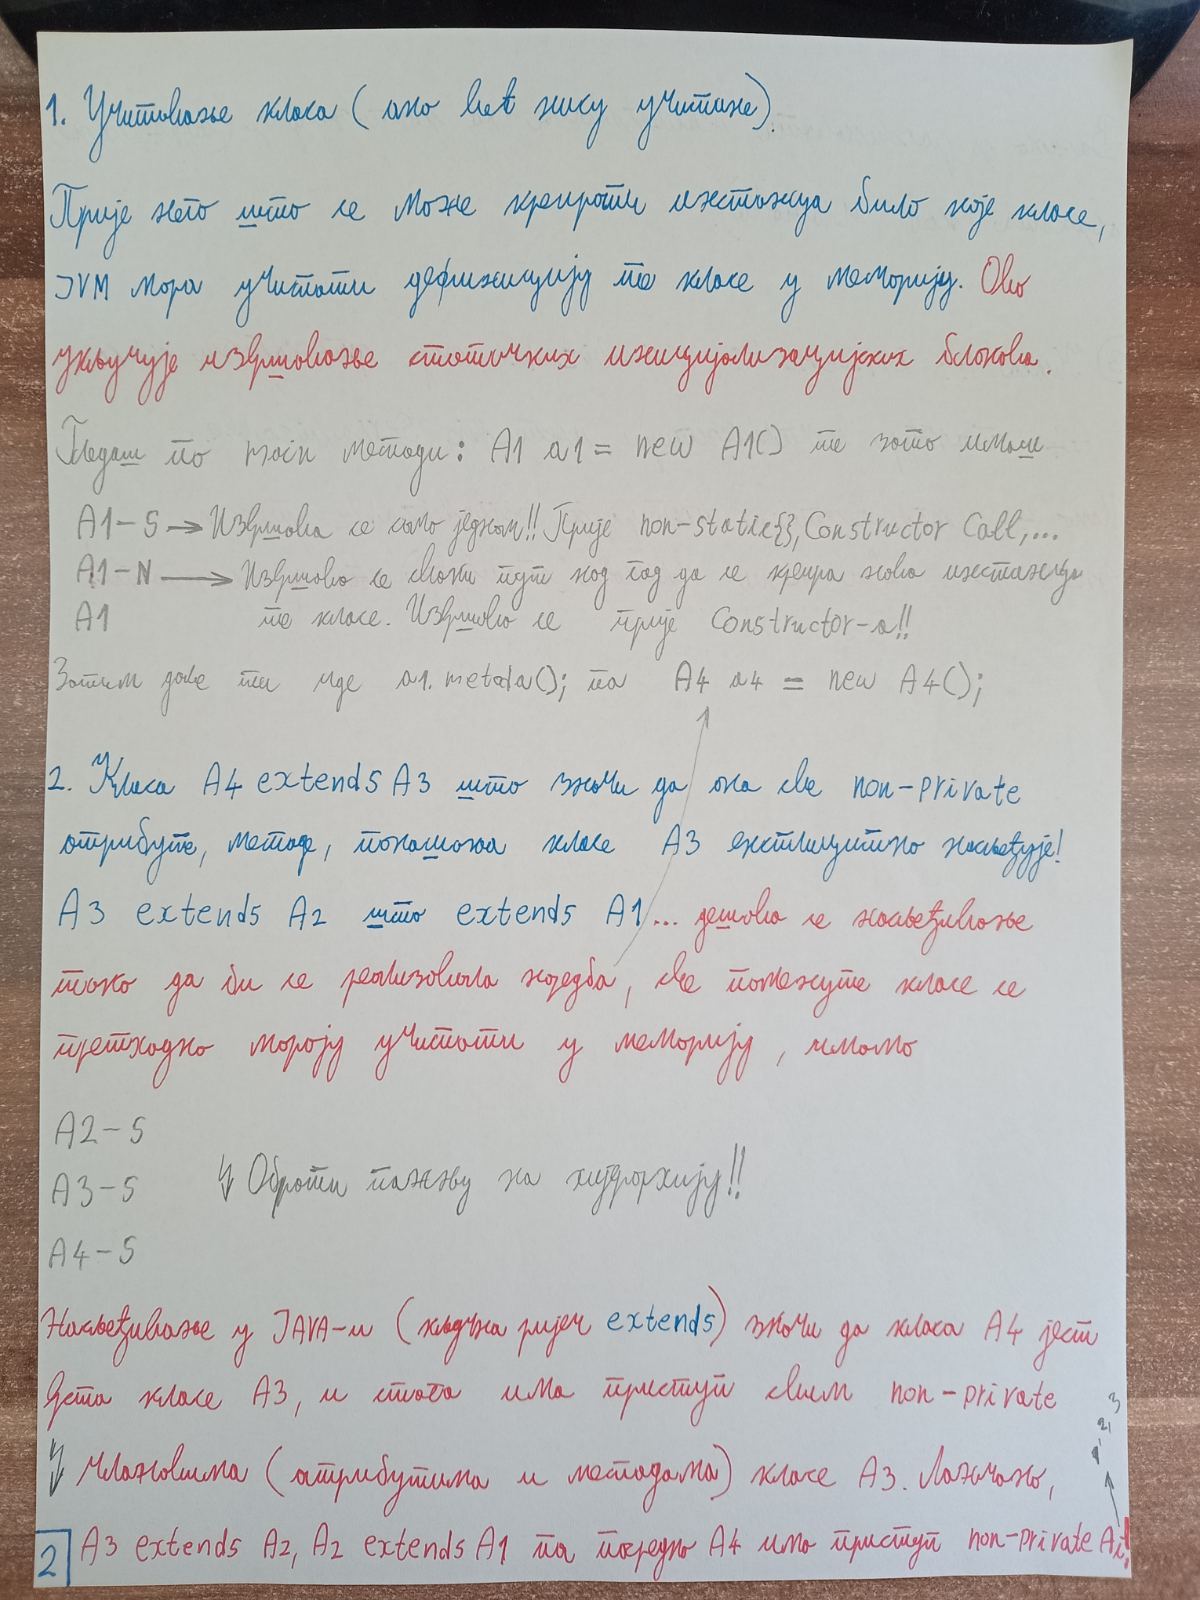 1. Учитавање класа (ако већ нису учитане).
Прије него што се може креирати инстанца било које класе,
JVM мора учитати дефиницију те класе у меморију. Ово
укључује извршавање статичких иницијализацијских блокова.
Гледаш по main методи: A1 a1 = new A1() те зато имаш
A1-S → Извршава се само једном!! Прије non-static{}, Constructor Call,...
A1-N → Извршава се сваки пут кад год да се креира нова инстанца
A1 те класе. Извршава се прије Constructor-а!!
Затим даље ти иде a1.metoda(); па A4 a4 = new A4();
2. Класа A4 extends A3 што значи да она све non-private
атрибуте, методе, понашања класе A3 експлицитно насљеђује!
A3 extends A2 што extends A1... дешава се насљеђивање
тако да би се реализовала наредба, све поменуте класе се
претходно морају учитати у меморију, имамо
A2-S
A3-S ↯ Обрати пажњу на хијерархију!!
A4-S
Насљеђивање у JAVA-и (кључна ријеч extends) значи да класа A4 јест
врста класе A3, и стога има приступ свим non-private
↯ члановима (атрибутима и методама) класе A3. Ланчано,
1, 2, 3
2 A3 extends A2, A2 extends A1 па посредно A4 има приступ non-private Ai!